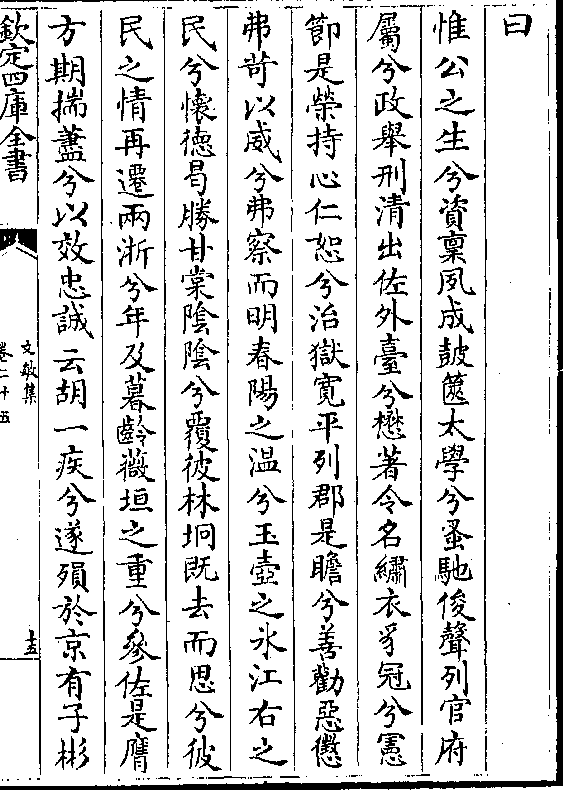 曰
惟公之生兮資稟夙成鼓篋太學兮蚤馳俊聲列官府
屬兮政舉刑清出佐外臺兮懋著令名繡衣豸冠兮憲
節是榮持心仁恕兮治獄寛平列郡是瞻兮善勸惡懲
弗苛以威兮弗察而明春陽之温兮玉壺之氷江右之
民兮懐德曷勝甘棠隂隂兮覆彼林坰既去而思兮彼
民之情再遷兩浙兮年及暮齡薇垣之重兮叅佐是膺
方期揣藎兮以效忠誠云胡一疾兮遂殞於京有子彬
欽定四庫全書
文敏集
卷二十五
十五